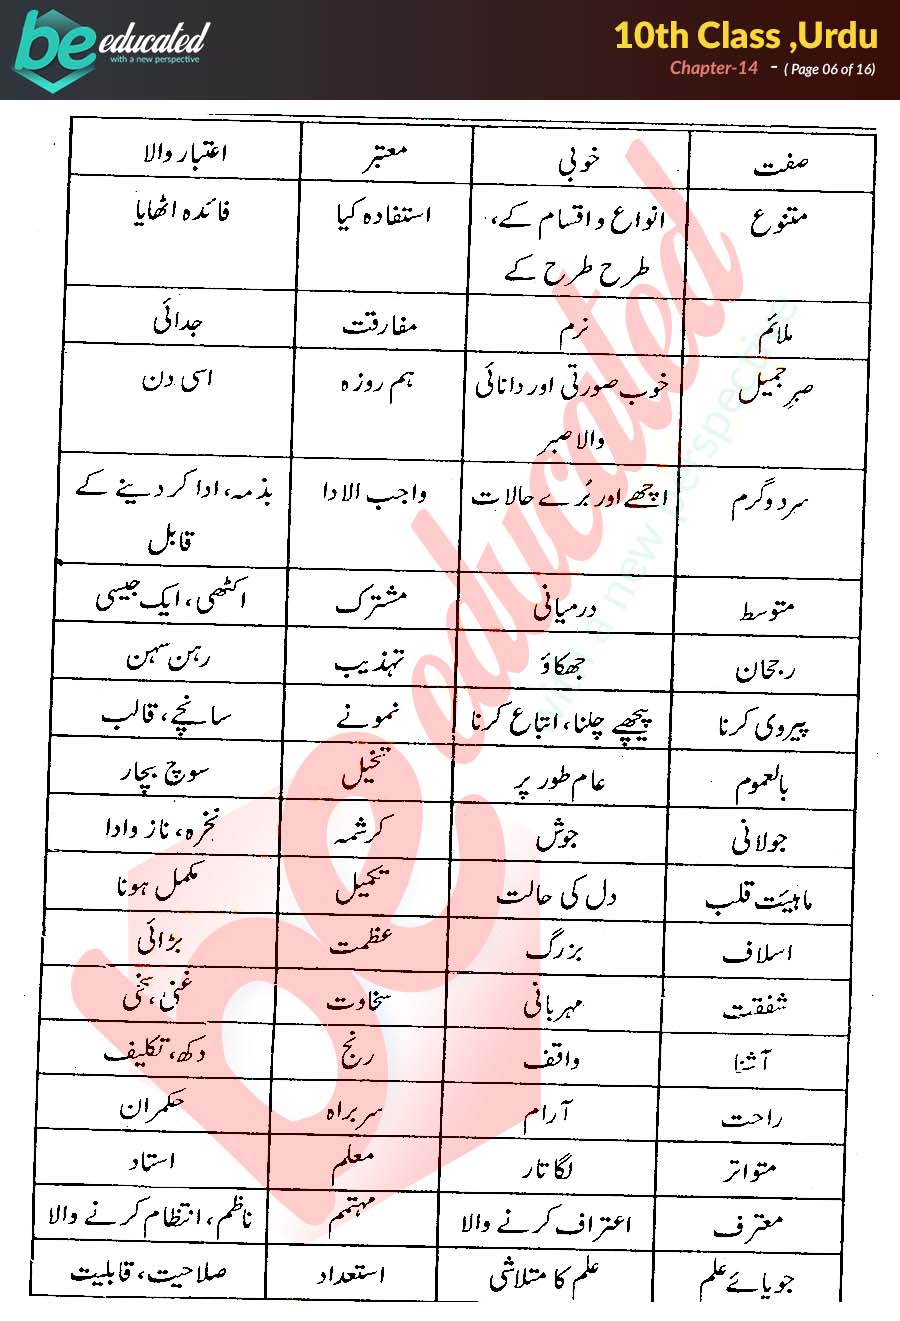 be educated
with a new perspective
10th Class ,Urdu
Chapter-14 - ( Page 06 of 16)
صفت خوبی معتبر اعتبار والا
متنوع انواع و اقسام کے، استفادہ کیا فائدہ اٹھایا
طرح طرح کے
ملائم نرم مفارقت جدائی
صبرِ جمیل خوب صورتی اور دانائی ہم روزہ اسی دن
والا صبر
سرد و گرم اچھے اور بُرے حالات واجب الادا بذمہ، ادا کر دینے کے
قابل
متوسط درمیانی مشترک اکٹھی، ایک جیسی
رجحان جھکاؤ تہذیب رہن سہن
پیروی کرنا پیچھے چلنا، اتباع کرنا نمونے سانچے، قالب
بالعموم عام طور پر تخیل سوچ بچار
جولانی جوش کرشمہ نخرہ، ناز و ادا
ماہیئت قلب دل کی حالت تکمیل مکمل ہونا
اسلاف بزرگ عظمت بڑائی
شفقت مہربانی سخاوت غنی، سخی
آشنا واقف رنج دکھ، تکلیف
راحت آرام سربراہ حکمران
متواتر لگاتار معلم استاد
معترف اعتراف کرنے والا مہتمم ناظم، انتظام کرنے والا
جویائے علم علم کا متلاشی استعداد صلاحیت، قابلیت
be educated
with a new perspective